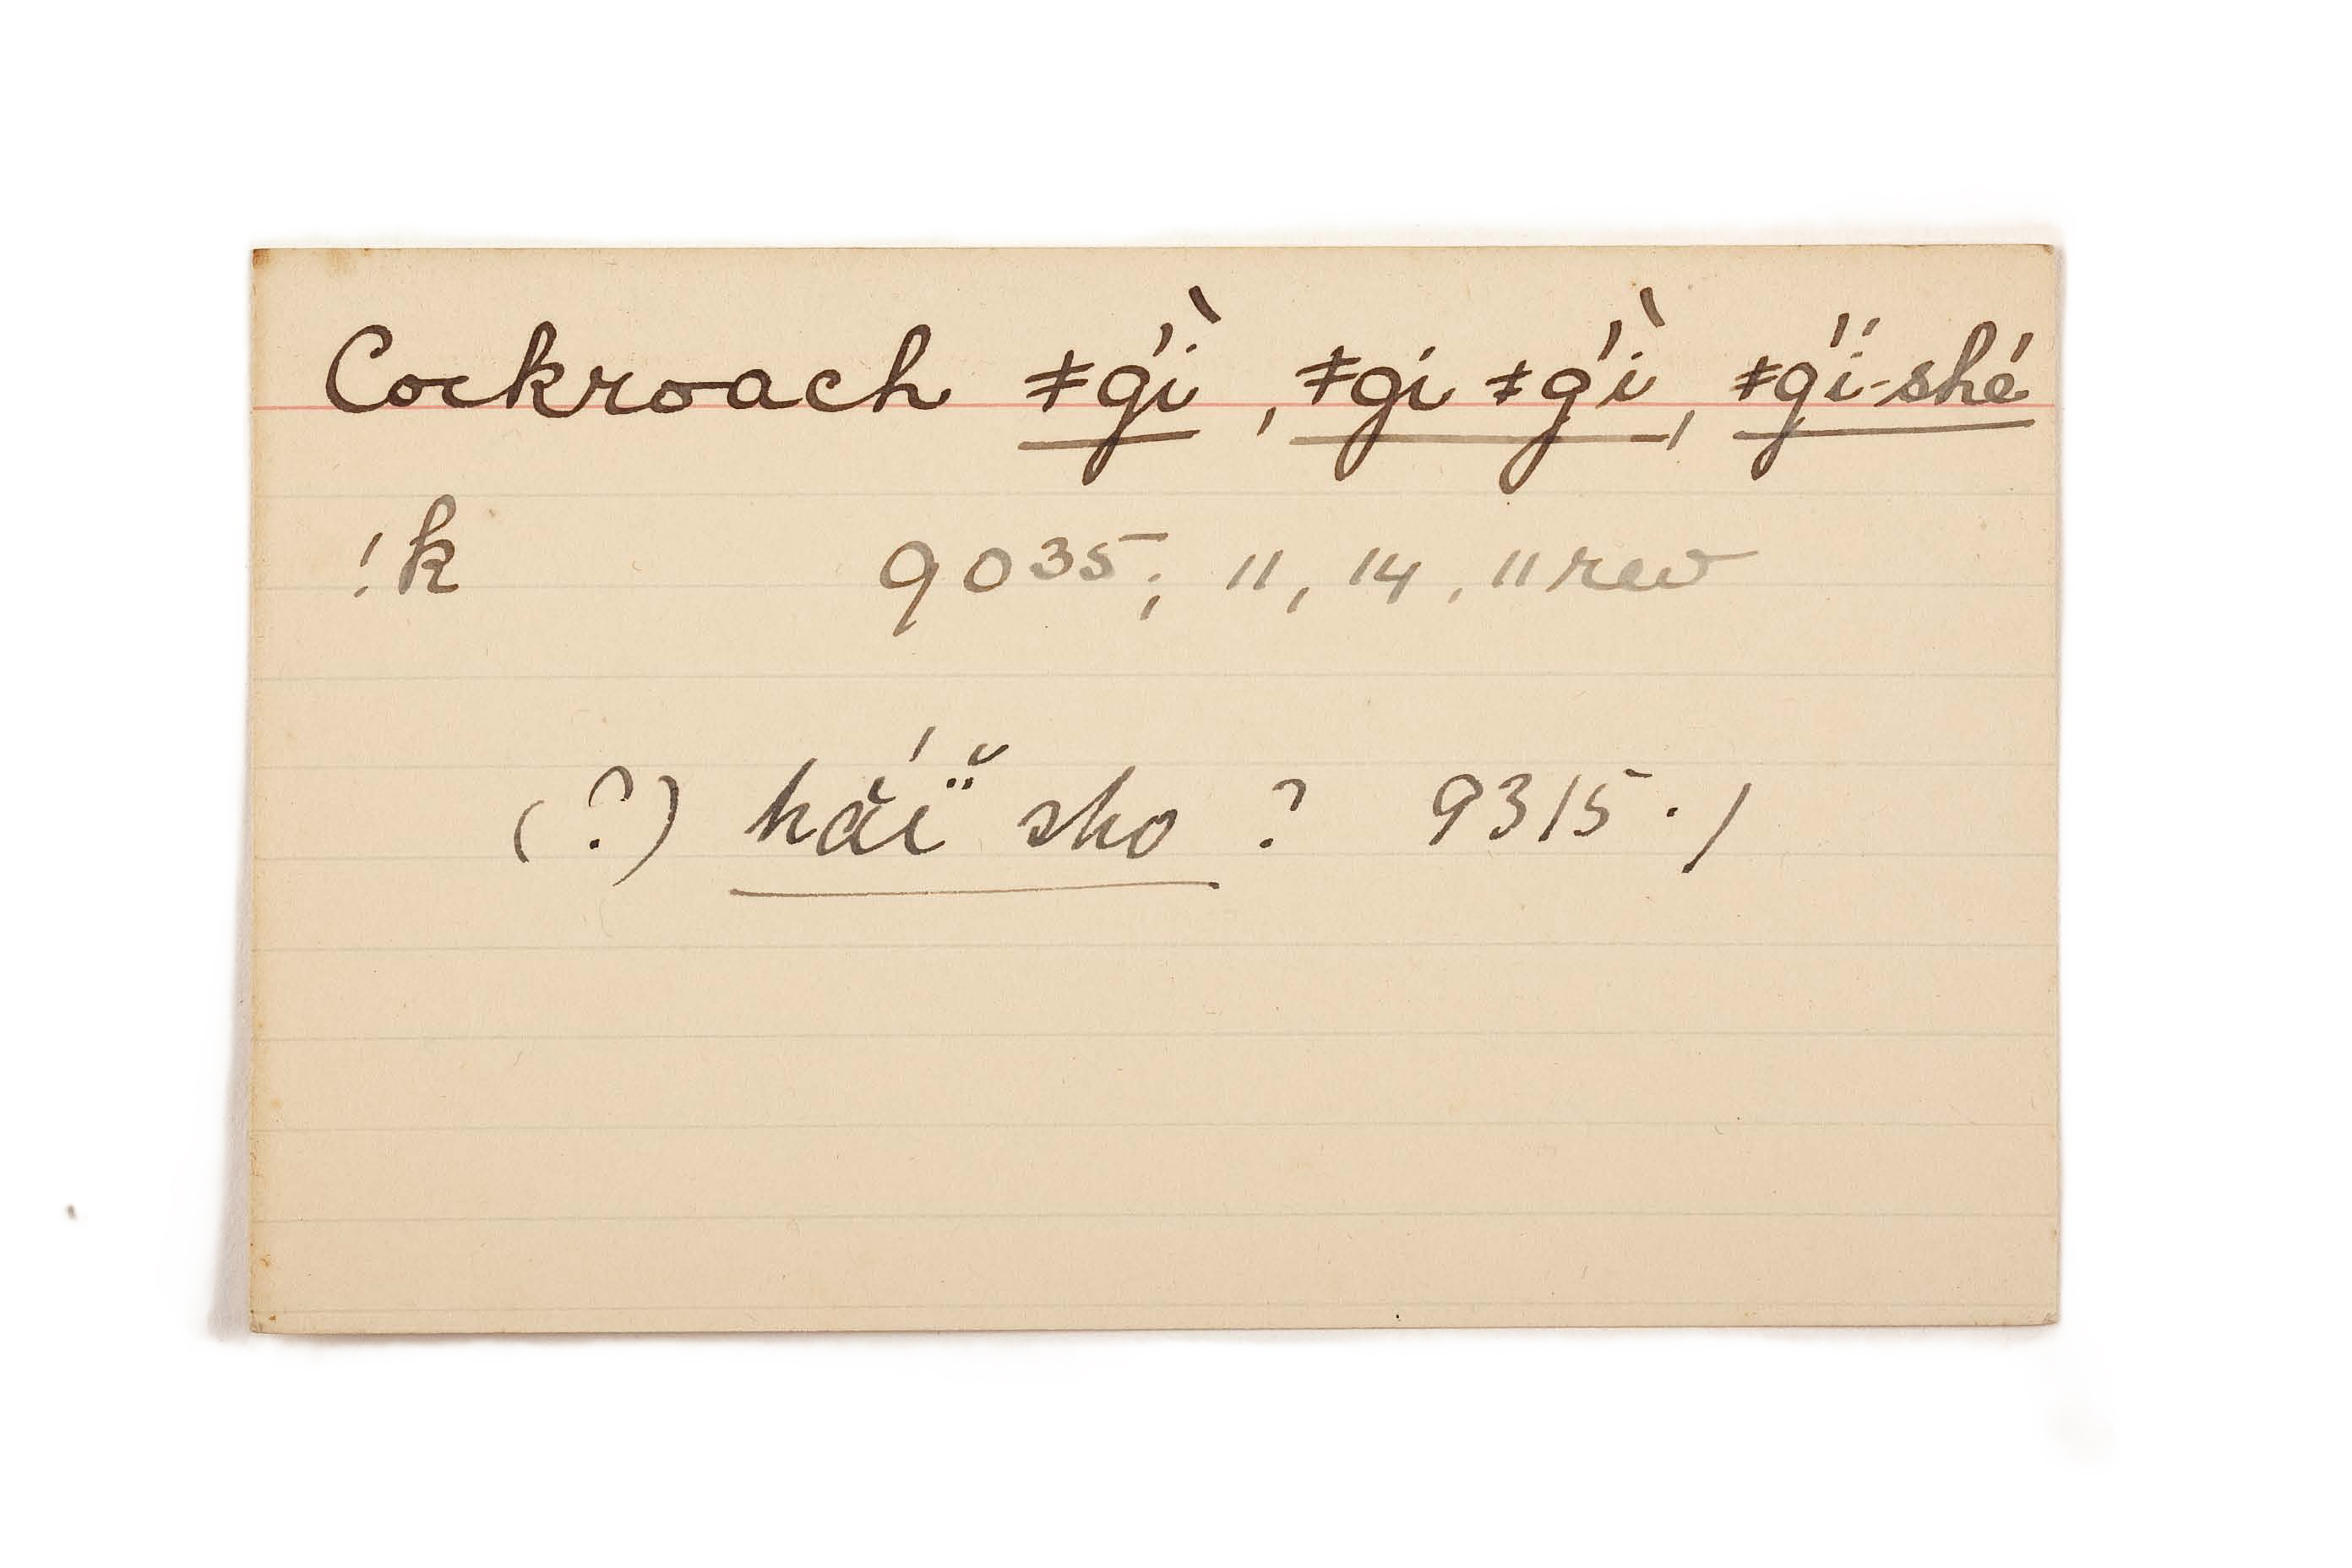 Cockroach ǂgí̀, ǂgi ǂgí̀, ǂgí̈-shé
!k 9035; 11, 14, 11 rev
(?) hắï̆ sho ? 9315 . /